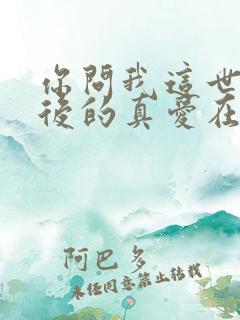 你問我這世
後的真愛在
阿巴多
未經同意禁止轉載